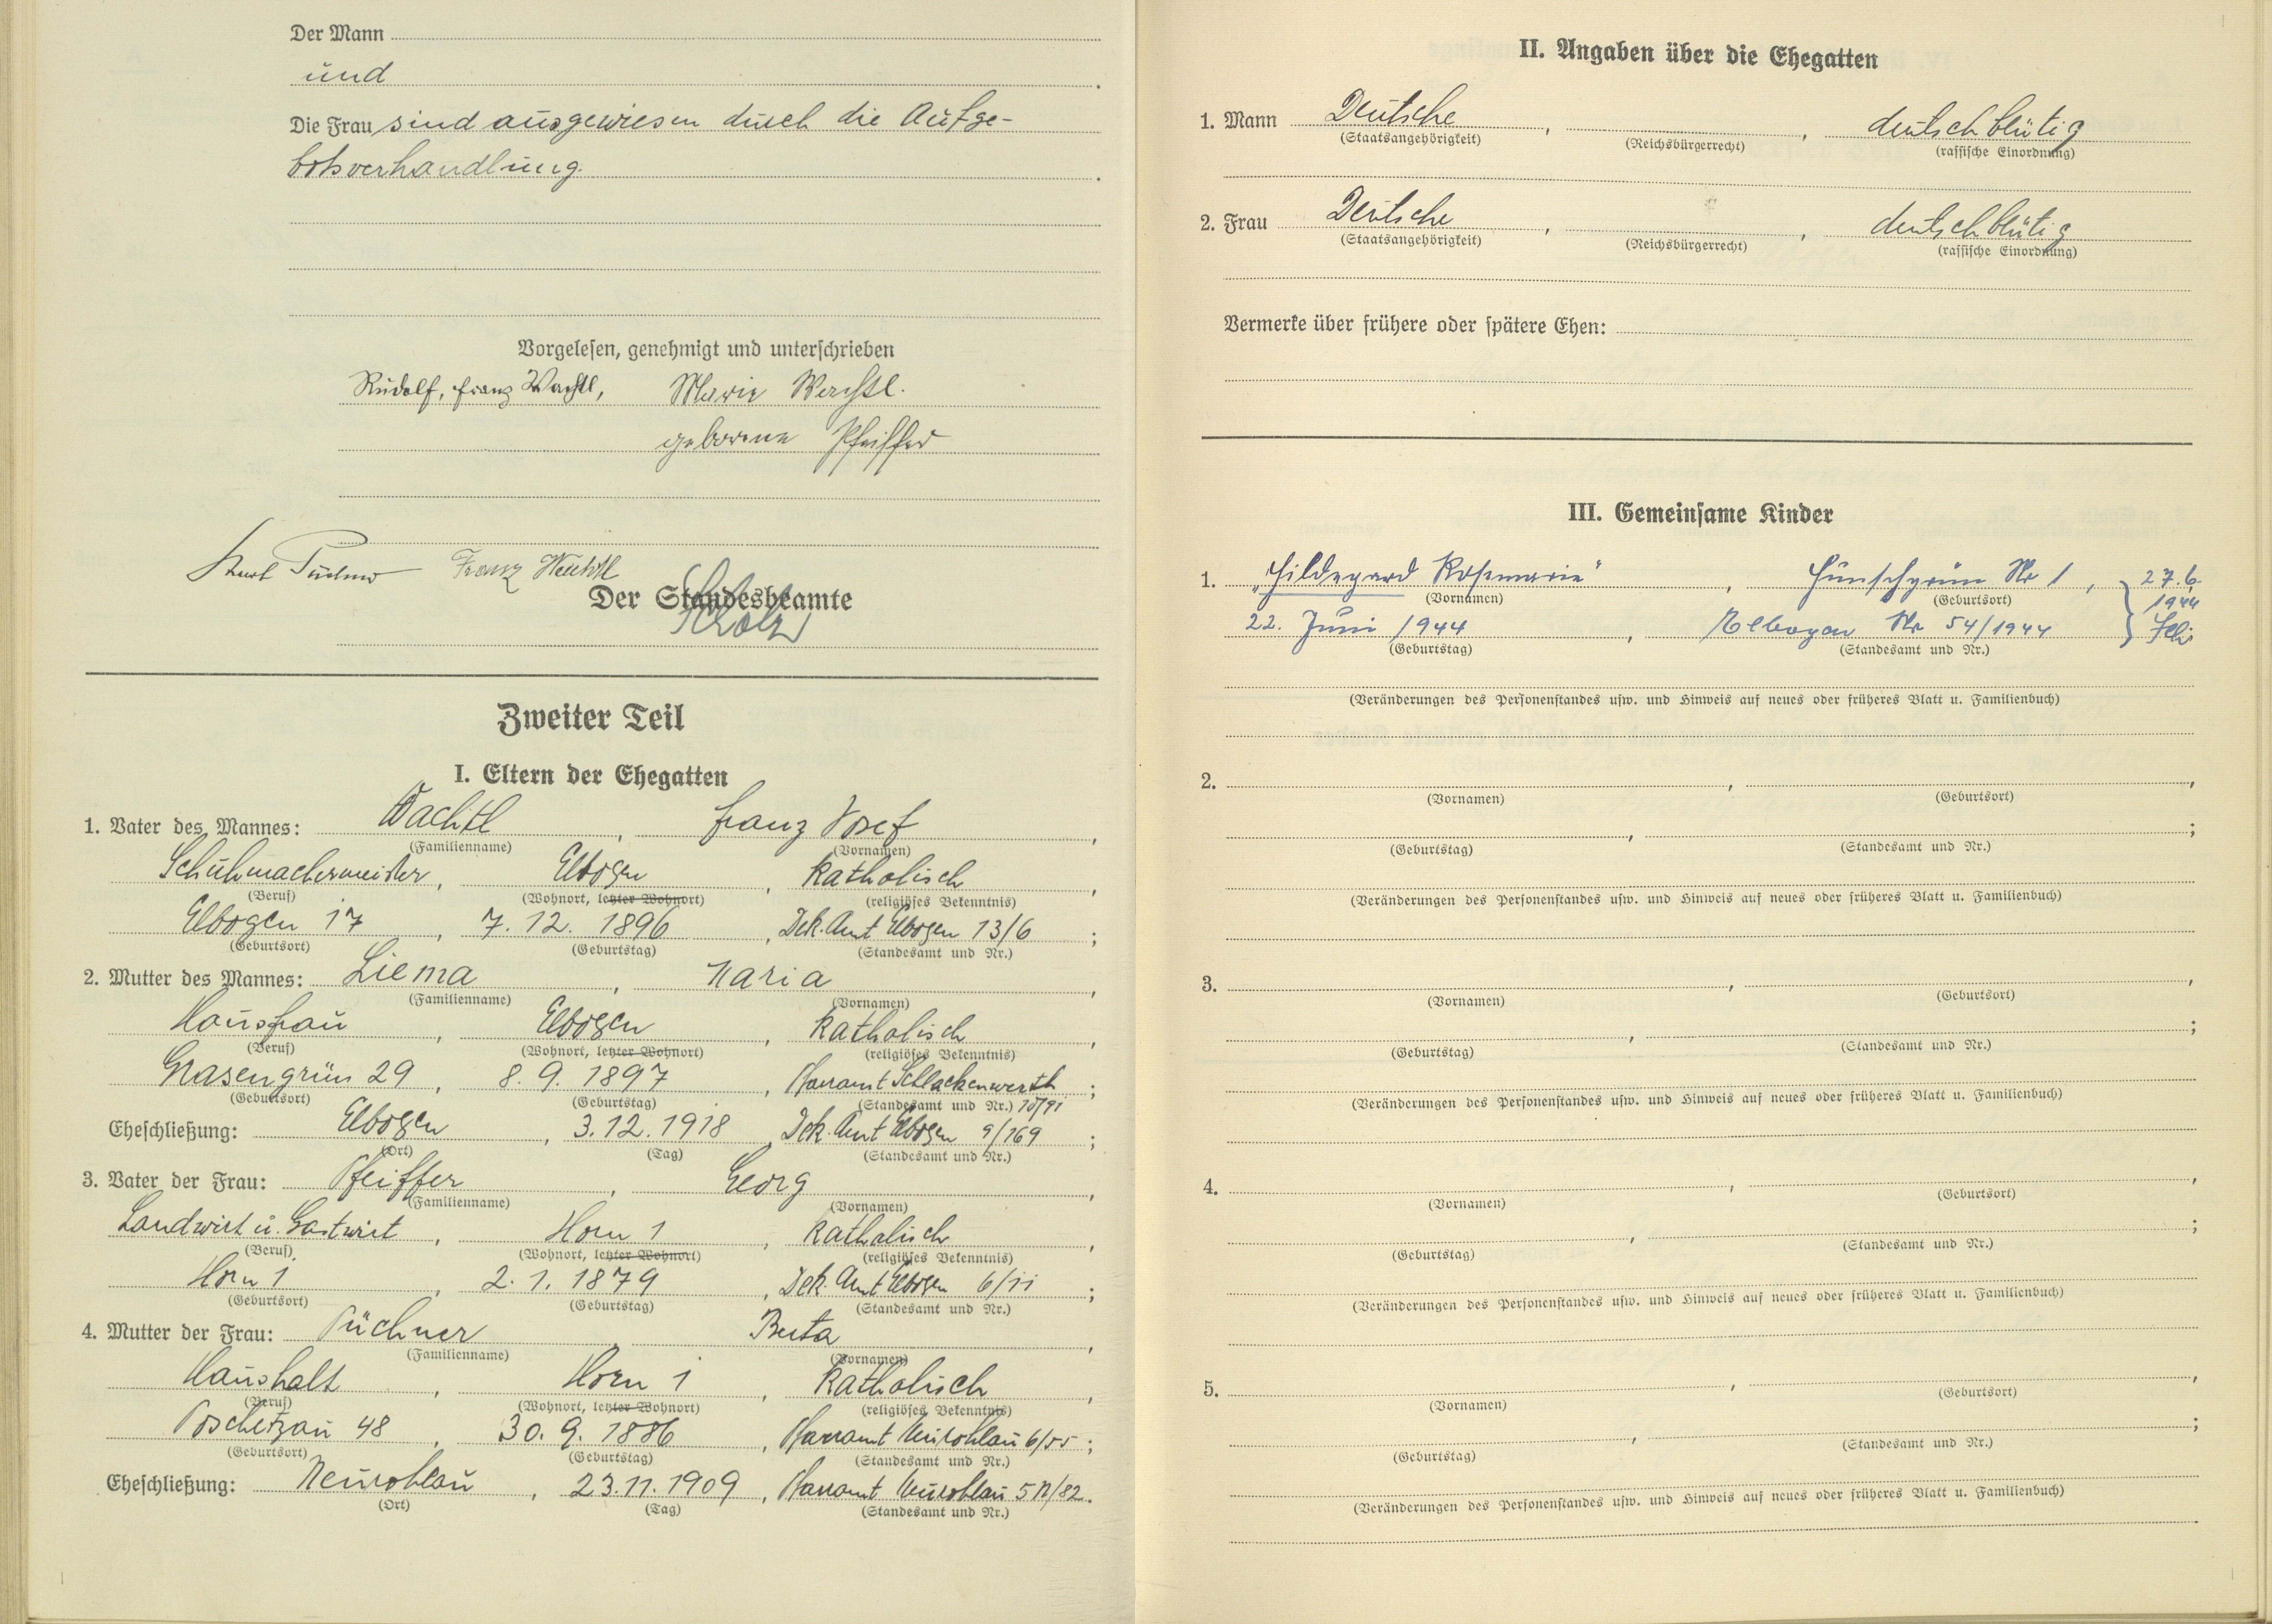 Der Mann
und
Die Frau sind ausgewiesen durch die Aufge-
botsverhandlung.
Vorgelesen, genehmigt und unterschrieben
Rudolf, Franz Wachtl, Marie Wachtl.
geborene Pfeiffer
Karl Püchner Franz Wachtl
Der Standesbeamte
Scholz
Zweiter Teil
I. Eltern der Ehegatten
1. Vater des Mannes: Wachtl, Franz Josef,
(Familienname) (Vornamen)
Schuhmachermeister, Elbogen, katholisch,
(Beruf) (Wohnort, letzter Wohnort) (religiöses Bekenntnis)
Elbogen 17, 7. 12. 1896, Dek. Amt Elbogen 13/6;
(Geburtsort) (Geburtstag) (Standesamt und Nr.)
2. Mutter des Mannes: Liema, Maria,
(Familienname) (Vornamen)
Hausfrau, Elbogen, katholisch,
(Beruf) (Wohnort, letzter Wohnort) (religiöses Bekenntnis)
Grasengrün 29, 8. 9. 1897, Pfarramt Schlackenwerth;
(Geburtsort) (Geburtstag) (Standesamt und Nr.) 10/91
Eheschließung: Elbogen, 3. 12. 1918, Dek. Amt Elbogen 9/169;
(Ort) (Tag) (Standesamt und Nr.)
3. Vater der Frau: Pfeiffer, Georg,
(Familienname) (Vornamen)
Landwirt u. Gastwirt, Horn 1, katholisch,
(Beruf) (Wohnort, letzter Wohnort) (religiöses Bekenntnis)
Horn 1, 2. 1. 1879, Dek. Amt Elbogen 6/11;
(Geburtsort) (Geburtstag) (Standesamt und Nr.)
4. Mutter der Frau: Püchner, Berta,
(Familienname) (Vornamen)
Haushalt, Horn 1, katholisch,
(Beruf) (Wohnort, letzter Wohnort) (religiöses Bekenntnis)
Poschetzau 48, 30. 9. 1886, Pfarramt Neurohlau 6/55;
(Geburtsort) (Geburtstag) (Standesamt und Nr.)
Eheschließung: Neurohlau, 23. 11. 1909, Pfarramt Neurohlau 5 N/82.
(Ort) (Tag) (Standesamt und Nr.)
II. Angaben über die Ehegatten
1. Mann Deutsche, , deutschblütig
(Staatsangehörigkeit) (Reichsbürgerrecht) (rassische Einordnung)
2. Frau Deutsche, , deutschblütig
(Staatsangehörigkeit) (Reichsbürgerrecht) (rassische Einordnung)
Vermerke über frühere oder spätere Ehen:
III. Gemeinsame Kinder
1. „Hildegard Rosemarie“, Hünschgrün Nr 1, 27. 6.
(Vornamen) (Geburtsort) 1944
22. Juni 1944, Elbogen Nr 54/1944
(Geburtstag) (Standesamt und Nr.)
(Veränderungen des Personenstandes usw. und Hinweis auf neues oder früheres Blatt u. Familienbuch)
2. , ,
(Vornamen) (Geburtsort)
, ;
(Geburtstag) (Standesamt und Nr.)
(Veränderungen des Personenstandes usw. und Hinweis auf neues oder früheres Blatt u. Familienbuch)
3. , ,
(Vornamen) (Geburtsort)
, ;
(Geburtstag) (Standesamt und Nr.)
(Veränderungen des Personenstandes usw. und Hinweis auf neues oder früheres Blatt u. Familienbuch)
4. , ,
(Vornamen) (Geburtsort)
, ;
(Geburtstag) (Standesamt und Nr.)
(Veränderungen des Personenstandes usw. und Hinweis auf neues oder früheres Blatt u. Familienbuch)
5. , ,
(Vornamen) (Geburtsort)
, ;
(Geburtstag) (Standesamt und Nr.)
(Veränderungen des Personenstandes usw. und Hinweis auf neues oder früheres Blatt u. Familienbuch)